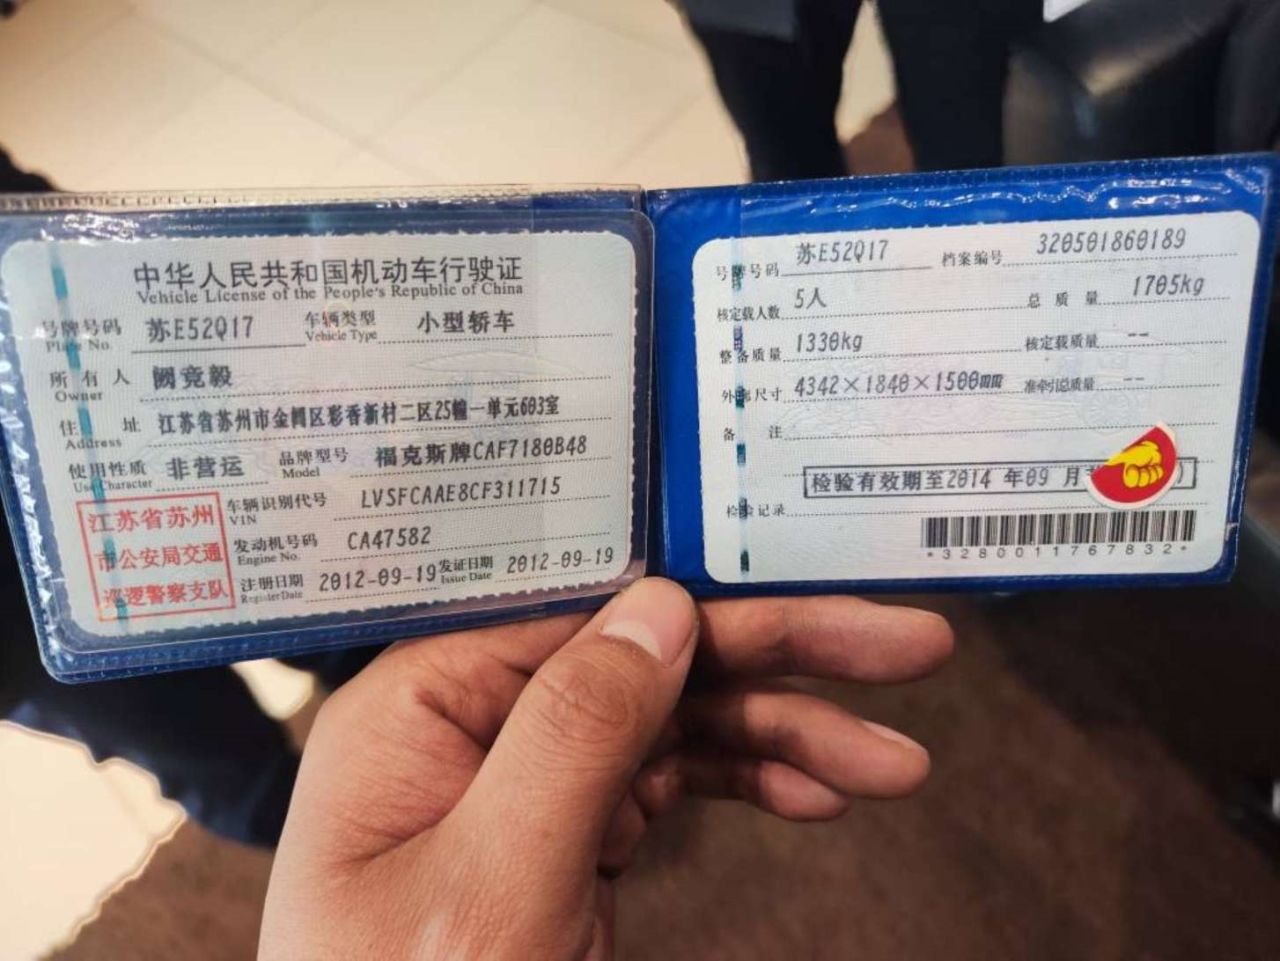 中华人民共和国机动车行驶证
Vehicle License of the People's Republic of China
号牌号码 苏E52Q17 车辆类型 小型轿车
Plate No. Vehicle Type
所有人 阚竞毅
Owner
住址 江苏省苏州市金阊区彩香新村二区25幢一单元603室
Address
使用性质 非营运 品牌型号 福克斯牌CAF7180B48
Use Character Model
江苏省苏州
市公安局交通
巡逻警察支队
车辆识别代号 LVSFCAAE8CF311715
VIN
发动机号码 CA47582
Engine No.
注册日期 2012-09-19 发证日期 2012-09-19
Register Date Issue Date
号牌号码 苏E52Q17 档案编号 320501860189
核定载人数 5人 总质量 1705kg
整备质量 1330kg 核定载质量 --
外廓尺寸 4342×1840×1500mm 准牵引总质量 --
备注
检验有效期至2014 年09 月
检验记录
*3280011767832*